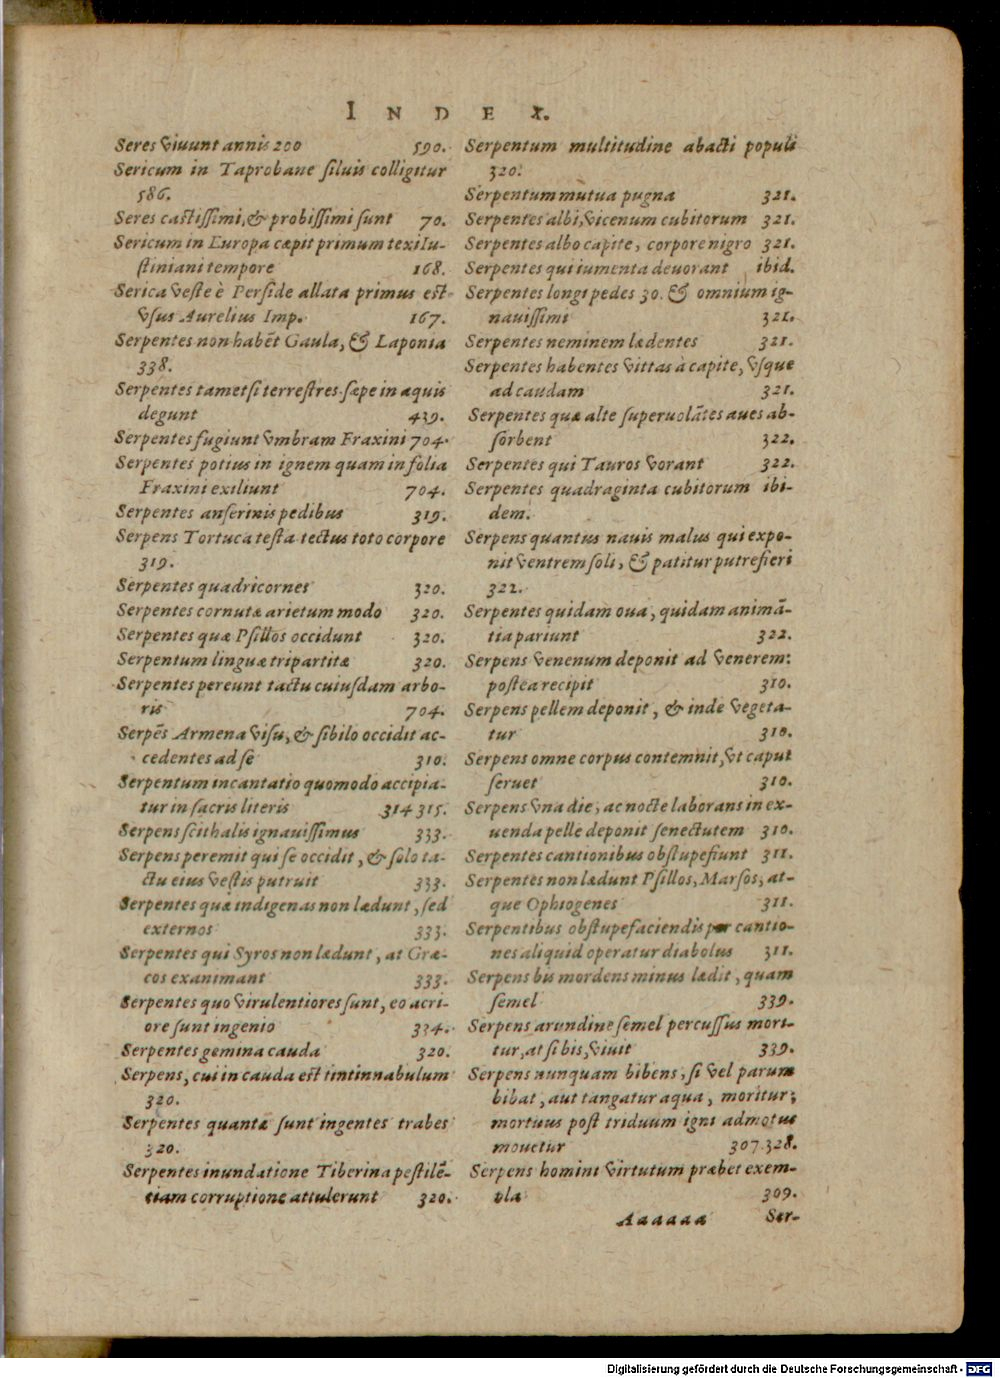 INDEX.
Seres viuunt annis 200 590.
Sericum in Taprobane siluis colligitur
586.
Seres castissimi, & probissimi sunt 70.
Sericum in Europa cæpit primum texi Iu-
stiniani tempore 168.
Serica veste è Perside allata primus est
vsus Aurelius Imp. 167.
Serpentes non habẽt Gaula, & Laponia
338.
Serpentes tametsi terrestres sæpe in aquis
degunt 439.
Serpentes fugiunt vmbram Fraxini 704.
Serpentes potius in ignem quam in folia
Fraxini exiliunt 704.
Serpentes anserinis pedibus 319.
Serpens Tortuca testa tectus toto corpore
319.
Serpentes quadricornes 320.
Serpentes cornutæ arietum modo 320.
Serpentes quæ Psillos occidunt 320.
Serpentum linguæ tripartitæ 320.
Serpentes pereunt tactu cuiusdam arbo-
ris 704.
Serpẽs Armena visu, & sibilo occidit ac-
cedentes ad se 310.
Serpentum incantatio quomodo accipia-
tur in sacris literis 314 315.
Serpens scithalis ignauissimus 333.
Serpens peremit qui se occidit, & solo ta-
ctu eius vestis putruit 333.
Serpentes quæ indigenas non lædunt, sed
externos 333.
Serpentes qui Syros non lædunt, at Græ-
cos exanimant 333.
Serpentes quo virulentiores sunt, eo acri-
ore sunt ingenio 334.
Serpentes gemina cauda 320.
Serpens, cui in cauda est tintinnabulum
320.
Serpentes quantæ sunt ingentes trabes
320.
Serpentes inundatione Tiberina pestilẽ-
tiam corruptione attulerunt 320.
Serpentum multitudine abacti populi
320.
Serpentum mutua pugna 321.
Serpentes albi, vicenum cubitorum 321.
Serpentes albo capite, corpore nigro 321.
Serpentes qui iumenta deuorant ibid.
Serpentes longi pedes 30. & omnium ig-
nauissimi 321.
Serpentes neminem lædentes 321.
Serpentes habentes vittas à capite, vsque
ad caudam 321.
Serpentes quæ alte superuolãtes aues ab-
sorbent 322.
Serpentes qui Tauros vorant 322.
Serpentes quadraginta cubitorum ibi-
dem.
Serpens quantus nauis malus qui expo-
nit ventrem soli, & patitur putrefieri
322.
Serpentes quidam oua, quidam animã-
tia pariunt 322.
Serpens venenum deponit ad venerem:
postea recipit 310.
Serpens pellem deponit, & inde vegeta-
tur 310.
Serpens omne corpus contemnit, vt caput
seruet 310.
Serpens vna die, ac nocte laborans in ex-
uenda pelle deponit senectutem 310.
Serpentes cantionibus obstupefiunt 311.
Serpentes non lædunt Psillos, Marsos, at-
que Ophiogenes 311.
Serpentibus obstupefaciendis per cantio-
nes aliquid operatur diabolus 311.
Serpens bis mordens minus lædit, quam
semel 339.
Serpens arundine semel percussus mori-
tur, at si bis, viuit 339.
Serpens nunquam bibens, si vel parum
bibat, aut tangatur aqua, moritur;
mortuus post triduum igni admotus
mouetur 307.328.
Serpens homini virtutum præbet exem-
pla 309.
Aaaaaa Ser-
Digitalisierung gefördert durch die Deutsche Forschungsgemeinschaft - DFG